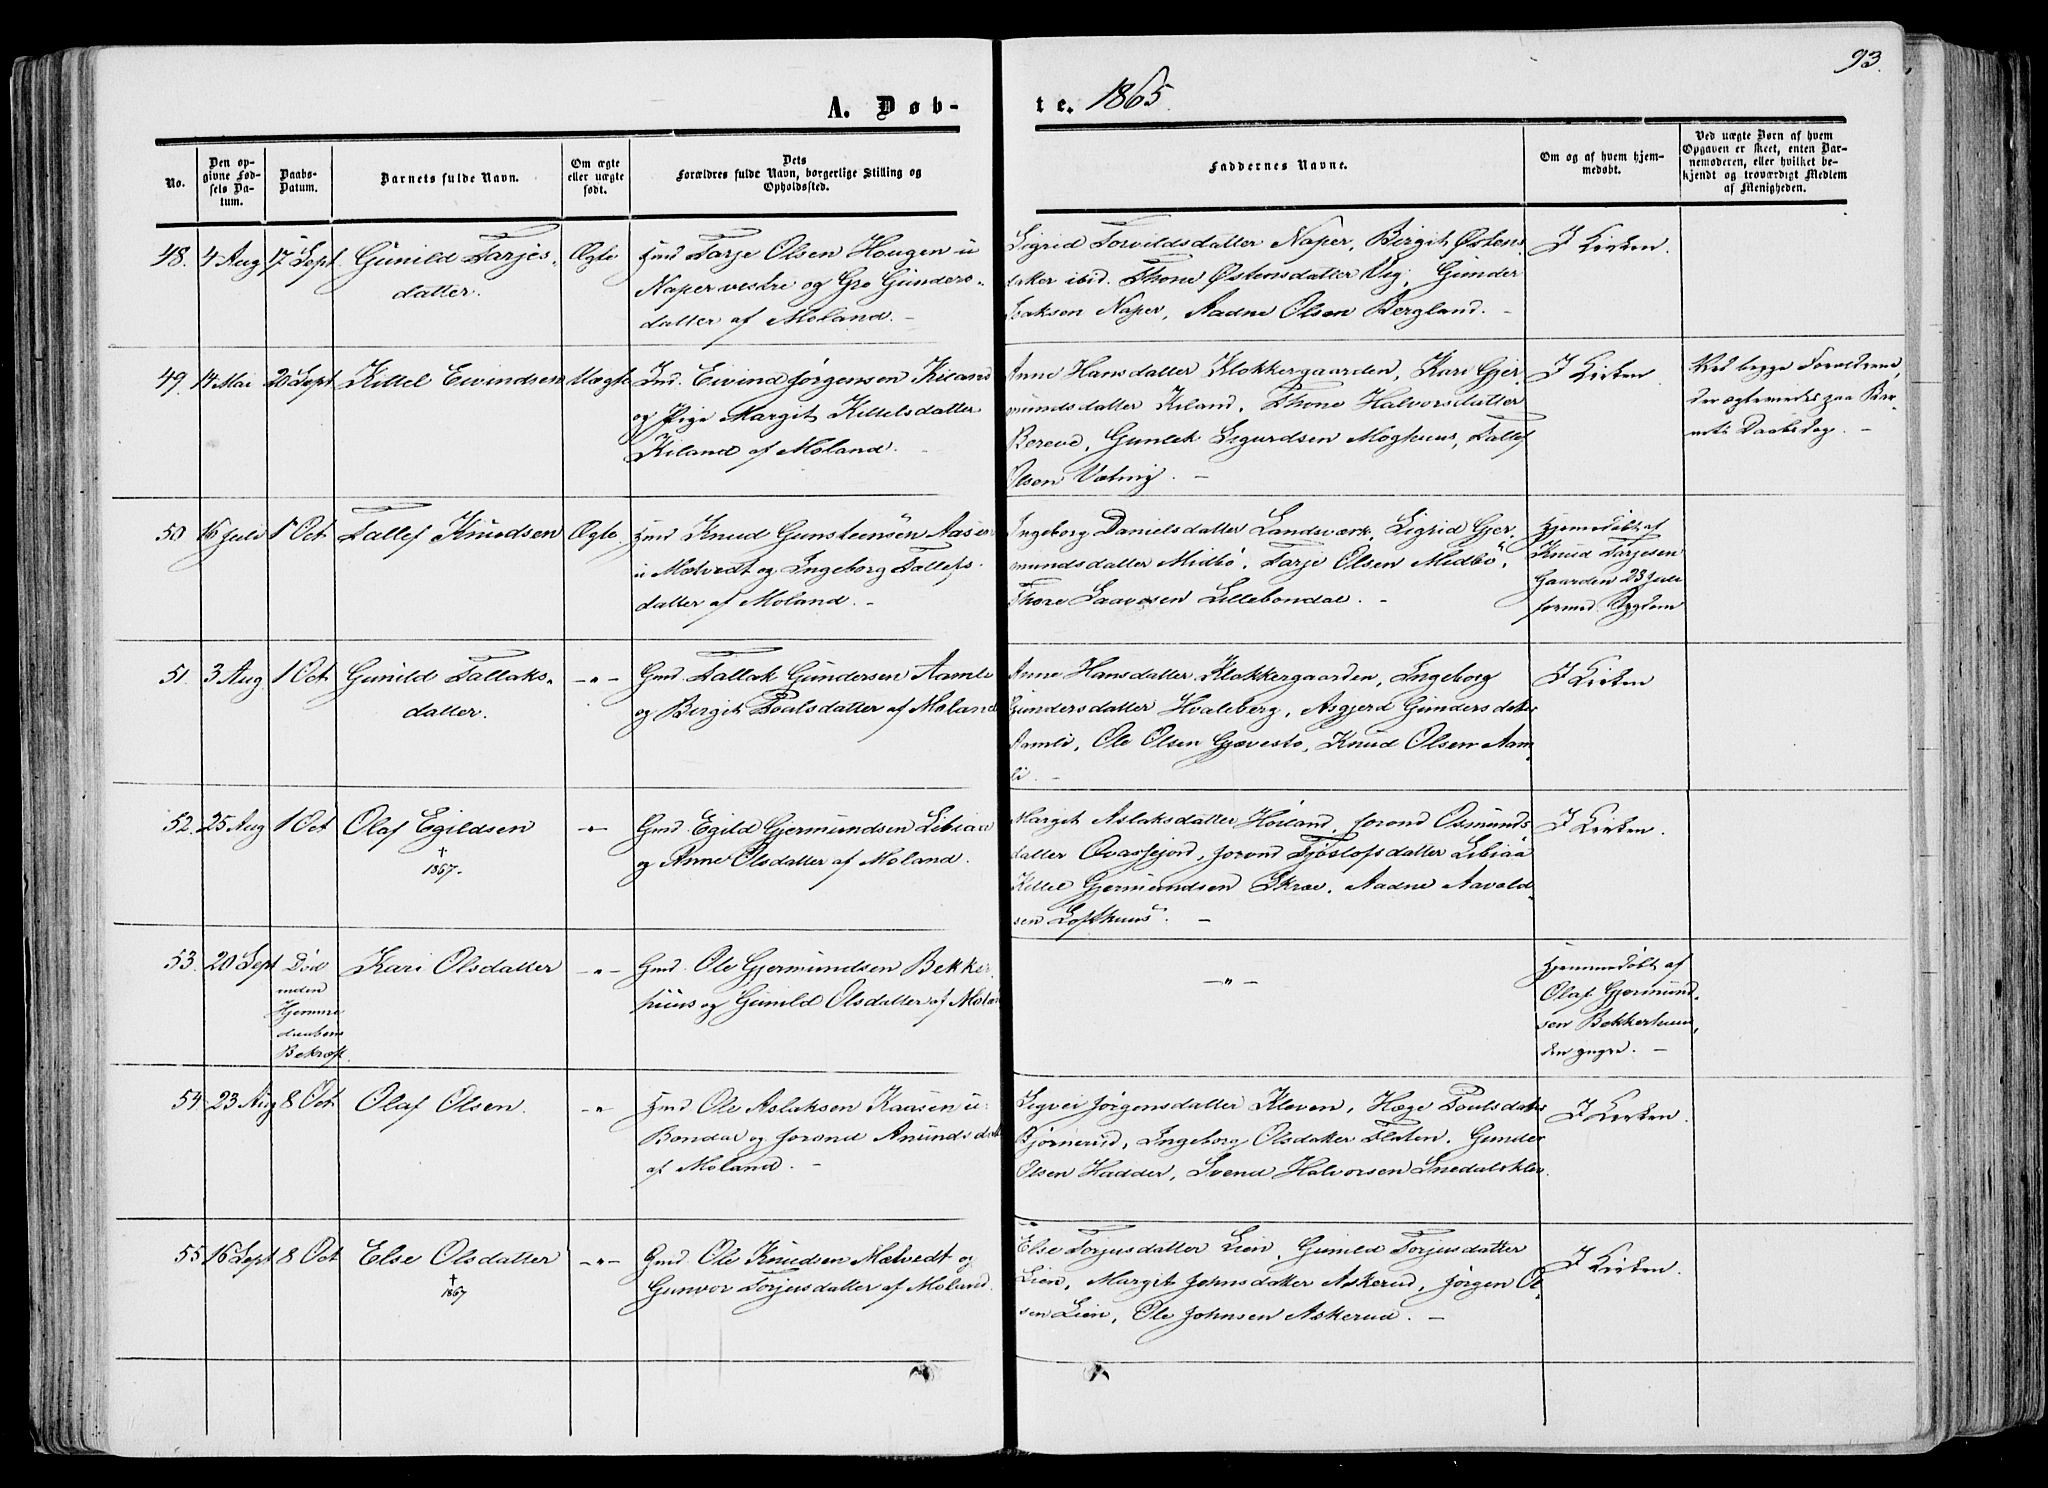 93.
A. Døb-
te. 1865.
No.
Den op-
givne Fød-
sels Da-
tum.
Daabs-
Datum.
Barnets fulde Navn.
Om ægte
eller uægte
født.
Dets
Forældres fulde Navn, borgerlige Stilling og
Opholdssted.
Faddernes Navne.
Om og af hvem hjem-
medøbt.
Ved uægte Børn af hvem
Opgaven er skeet, enten Bar-
nemoderen, eller hvilket be-
kjendt og troværdigt Medlem
af Menigheden.
48. 4 Aug 17 Sept Gunild Tarjes-
datter.
Ægte
Hmd Tarje Olsen Haugen u
Naper vestre og Gro Gunders-
datter af Moland. -
Sigrid Torvildsdatter Naper, Birgit Østens
datter ibid. Thone Østensdatter Veg, Gunder
Isaksen Naper, Aadne Olsen Bergland. -
I Kirken.
49. 14 Mai 20 Sept Kittel Eivindsen Uægte
Ind. Eivind Jørgensen Kiland
og Pige Margit Kittelsdatter
Kiland af Moland.
Anne Hansdatter Klokkergaarden, Kari Gjer-
mundsdatter Kiland, Thone Halvorsdatter
Boreve, Gunlek Sigurdsen Moghuus, Tallef
Olsen Vating. -
I Kirken
Ved begge Forældrene,
der ægtevviedes paa Bar-
nets Daabsdag. -
50 16 Juli 1 Oct Tallef Knudsen Ægte.
Hmd Knud Gunsteensen Aasen
u Molvedt og Ingeborg Tallefs-
datter af Moland. -
Ingeborg Danielsdatter Landsværk, Sigrid Gjer-
mundsdatter Midbö, Tarje Olsen Midbö,
Thore Saavesen Lillebondal. -
Hjemmedøbt af
Knud Tarjesen
Gaarden 23 Juli
formed. Sygdom
51. 3 Aug 1 Oct Gunild Tallaks-
datter.
-"-
Gmd. Tallak Gundersen Aamli
og Birgit Poalsdatter af Moland
Anne Hansdatter Klokkergaarden, Ingeborg
Gundersdatter Hvaleberg, Asgjerd Gundersdatter
Aamli, Ole Olsen Gjævesto, Knud Olsen Aam-
li. -
I Kirken
52. 25 Aug 1 Oct Olaf Egildsen
† 1867.
-"-
Gmd. Egild Gjermundsen Libiaa
og Anne Olsdatter af Moland.
Margit Aslaksdatter Höiland, Jorond Osmunds
datter Qvassejord, Jorond Tjöstolfsdatter Libiaa
Kittel Gjermundsen Skree, Aadne Aavald-
sen Lofthuus. -
I Kirken.
53. 20 Sept Död
uden
Hjemme
daabens
Bekræft.
Kari Olsdatter -"-
Gmd. Ole Gjermundsen Bekker
huus og Gunild Olsdatter af Moland
-"-
Hjemmedöbt af
Olaf Gjermund-
sen Bekkerhuus,
54 23 Aug 8 Oct Olaf Olsen. -"-
Hmd Ole Aslaksen Kaasen u.
Bondal og Jorond Anundsdat
af Moland. -
Sigvei Jørgensdatter Kleven, Hæge Poulsdatter
Bjørnerud, Ingeborg Olsdatter Flaten. Gunder
Olsen Hadder, Svend Halvorsen Snedalsklev.
I Kirken.
55 16 Sept 8 Oct Else Olsdatter
† 1867
-"-
Gmd. Ole Knudsen Molvedt og
Gunvor Torjusdatter af Moland.
Else Torjusdatter Lien, Gunild Torjusdatter
Lien, Margit Johnsdatter Askerud, Jørgen Ol-
sen Lien, Ole Johnsen Askerud. -
I Kirken.